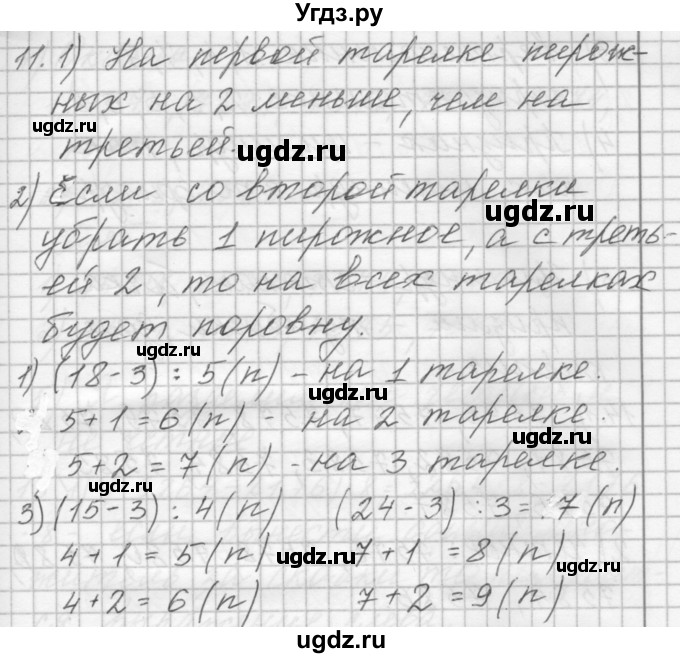 Угдз.ру
11. 1) На первой тарелке пирож-
ных на 2 меньше, чем на
третьей.
2) Если со второй тарелки
убрать 1 пирожное, а с треть-
ей 2, то на всех тарелках
будет поровну.
1) (18-3) : 5 (п) - на 1 тарелке.
5+1=6 (п) - на 2 тарелке.
5+2=7 (п) - на 3 тарелке.
3) (15-3) : 4 (п) (24-3) : 3 = 7 (п)
4+1=5 (п) 7+1 =8 (п)
4+2=6 (п) 7+2 =9 (п)
ugdz.ru
ugdz.ru
ugdz.ru
ugdz.ru
ugdz.ru
ugdz.ru
ugdz.ru
ugdz.ru
ugdz.ru
ugdz.ru
ugdz.ru
ugdz.ru
ugdz.ru